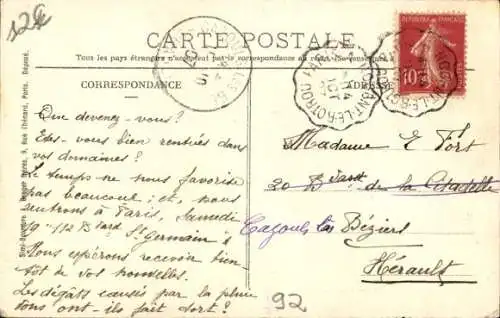 12€
CARTE POSTALE
Tous les pays étrangers n'acceptent pas la correspondance au recto.
CORRESPONDANCE
ADRESSE
RÉPUBLIQUE FRANÇAISE
10
NOGENT-LE-ROTROU
Que devenez-vous?
Etes-vous bien rentrés dans
vos domaines?
Le temps ne nous favorise
pas beaucoup; et, nous
rentrons à Paris, Samedi
19-112 Bard
St Germain
Nous espérons recevoir bien-
tôt de vos nouvelles.
Les dégâts causés par la pluie
tons ont-ils fait tort?
Madame E Fort
20 Bard de la Citadelle
Cazouls les Béziers
Hérault
92